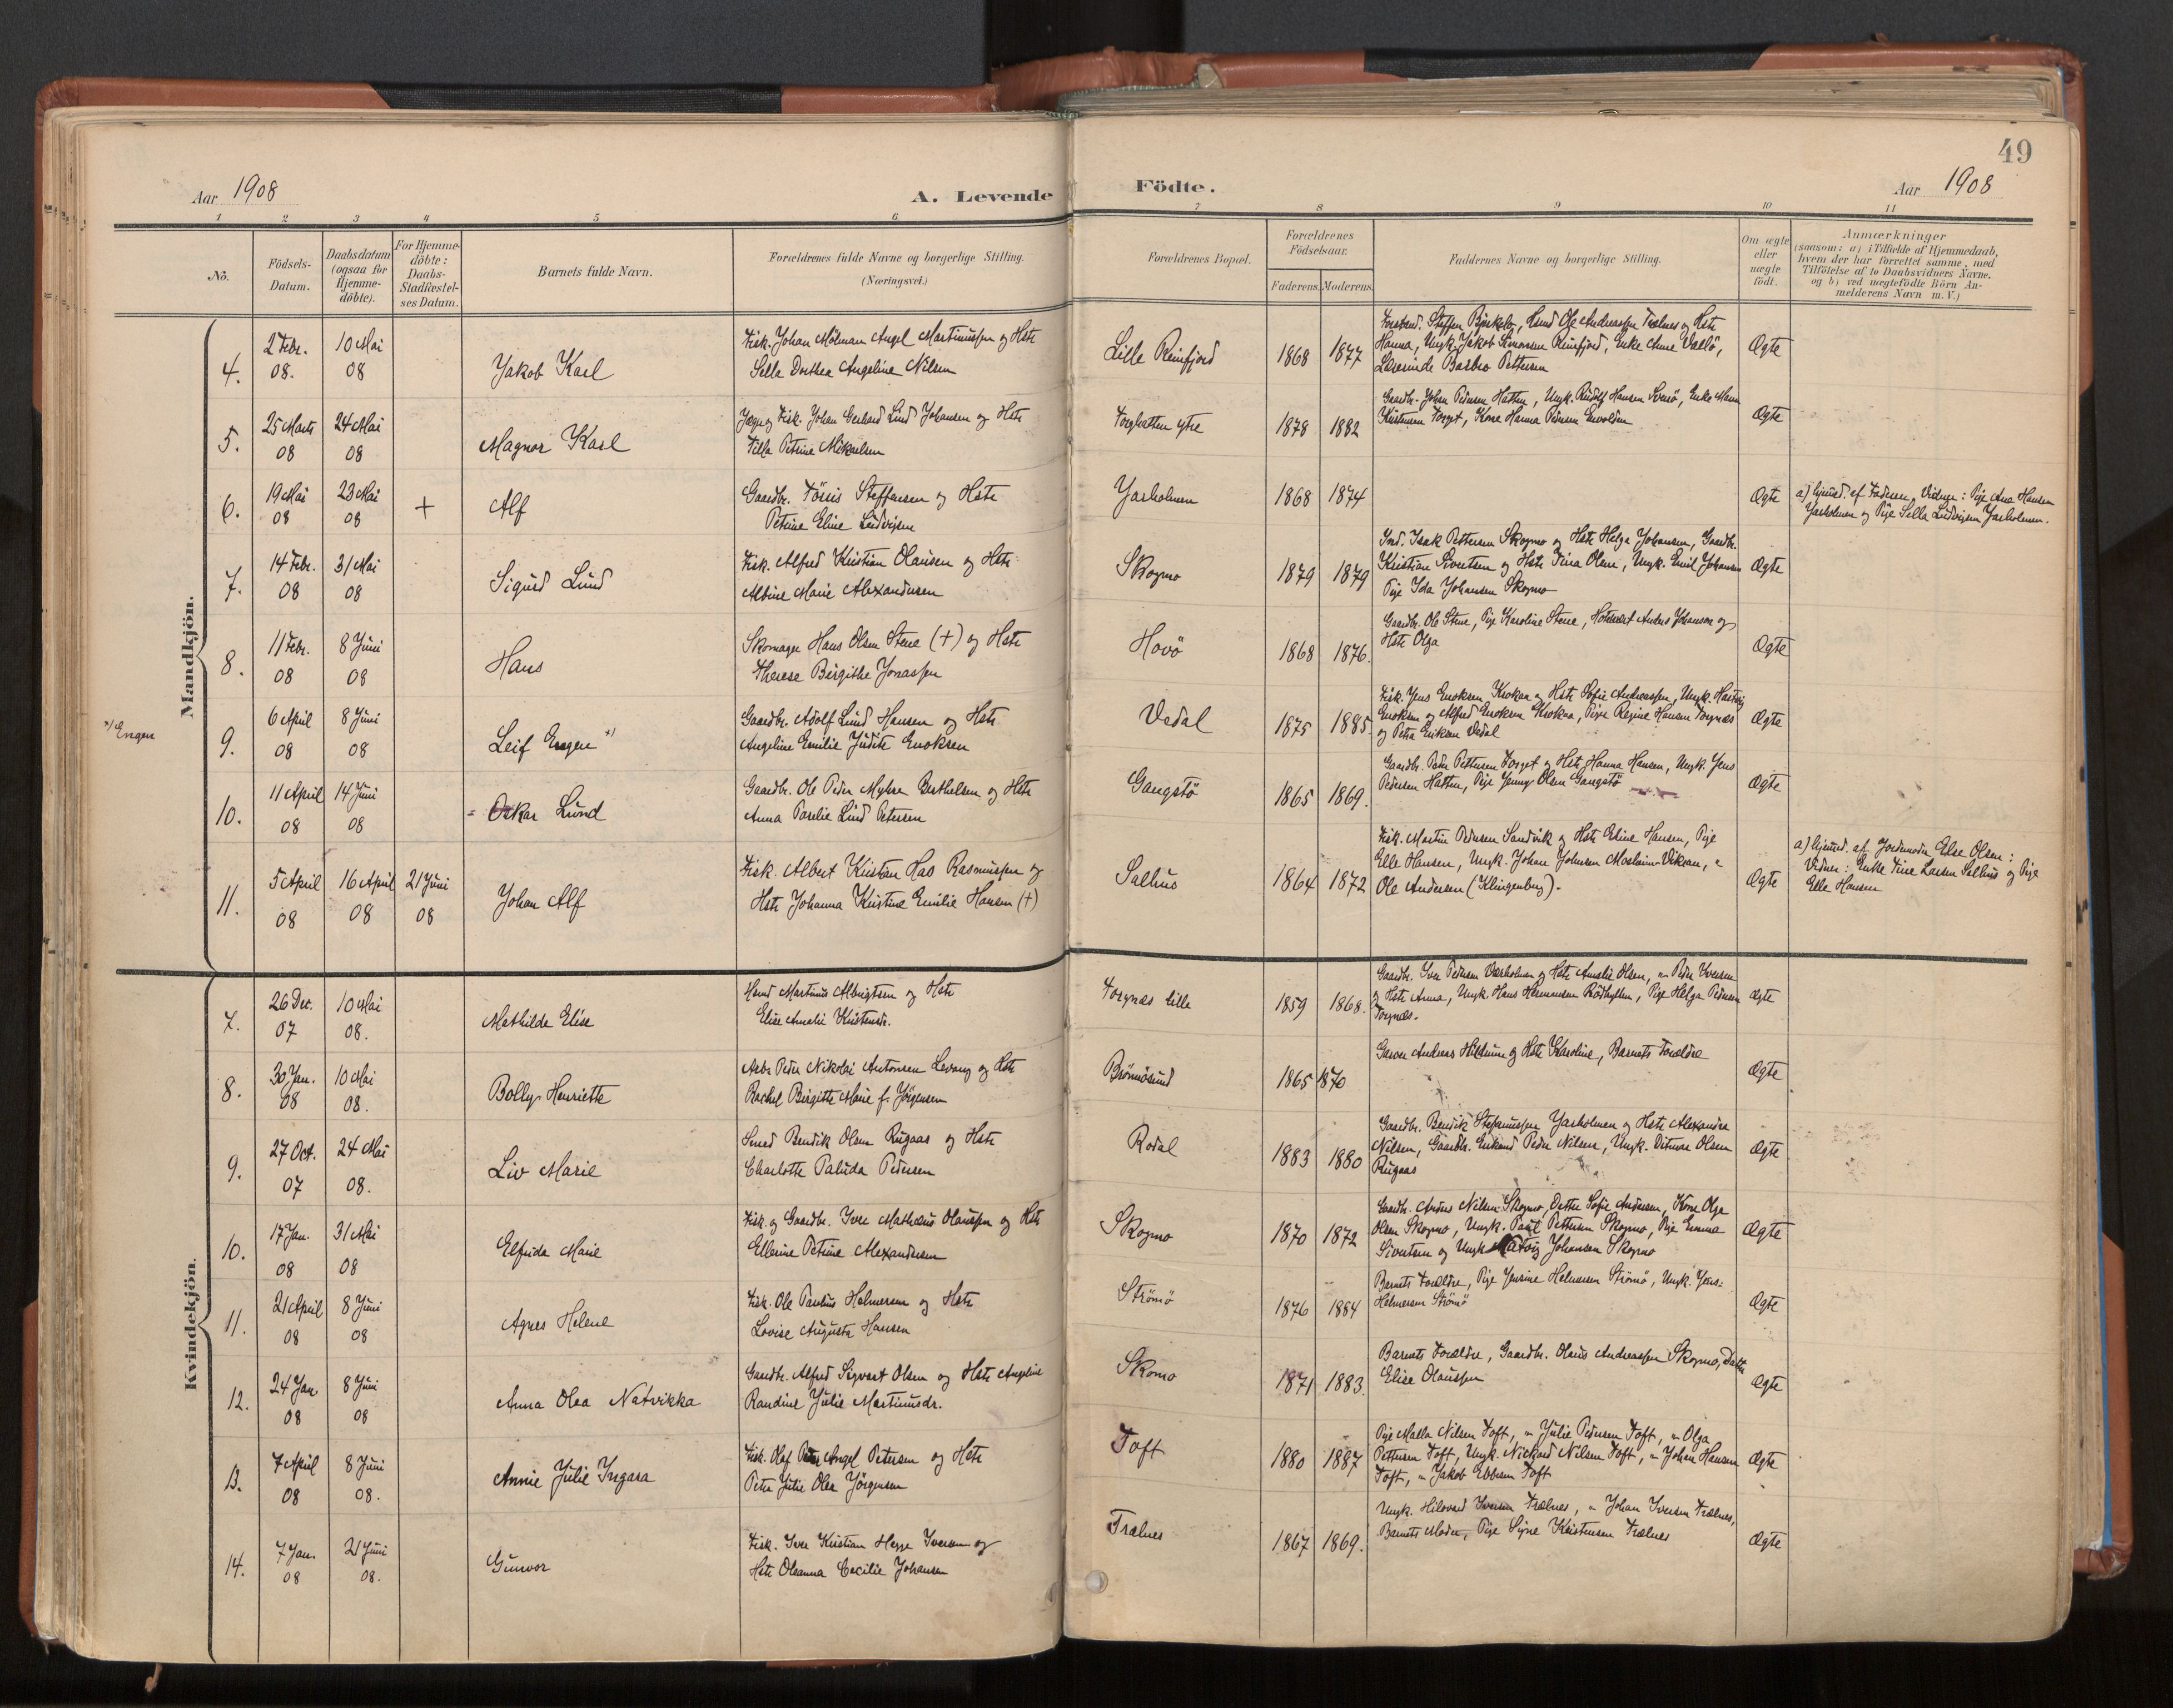 49
Aar 1908
A. Levende Födte.
Aar 1908
1 2 3 4 5 6 7 8 9 10 11
No.
Födsels-Datum.
Daabsdatum (ogsaa for Hjemme-döbte).
For Hjemme-döbte: Daabs-Stadfæstel-ses Datum.
Barnets fulde Navn.
Forældrenes fulde Navne og borgerlige Stilling. (Næringsvei.)
Forældrenes Bopæl.
Forældrenes Födselsaar.
Faderens. Moderens.
Faddernes Navne og borgerlige Stilling.
Om ægte eller uægte födt.
Anmærkninger
(saasom: a) i Tilfælde af Hjemmedaab,
hvem der har forrettet samme, med
Tilföielse af to Daabsvidners Navne,
og b) ved uægtefödte Börn An-
melderens Navn m. V.)
Mandkjön.
4.
2 Febr. 08.
10 Mai 08
Jakob Karl
Fisk. Johan Mölman Angel Martinussen og Hstr
Sella Dorthea Angeline Nilsen
Lille Reinfjord
1868 1877
Hanna, Ungk. Jakob Simonsen Reinfjord, Enke Anne Vallö,
Lærerinde Barbro Pettersen
Ægte
5.
25 Marts 08
24 Mai 08
Magnor Karl
Fisk. Johan Gerhard Lind Johansen og Hstr
Petrine Mikaelsen
Torghatten ytre
1878 1882
Gaardbr. Johan Pedersen Hatten, Ungk. Rudolf Hansen
Kristensen Torget, Kone Hanna Pedersen
Ægte
6.
19 Mai 08
23 Mai 08
+
Alf
Gaardbr. Steffensen og Hstr
Petrine Eline Ludvigsen
Jarholmen
1868 1874
Ægte
a) hjemmed. af Faderen, Vidner: Pige Ana Hansen
Jarholmen og Pige Sella Ludvigsen Jarholmen.
7.
14 Febr. 08
31 Mai 08
Sigurd Lund
Fisk. Alfred Kristian Olausen og Hstr
Albine Marie Alexandersen
Skogmo
1879 1879
Ind. Isak Pettersen Skogmo og Hstr Helga Johansen, Gaardbr.
Kristian Sivertsen og Hstr Tina Olsen, Ungk. Emil Johansen
Pige Ida Johansen Skogmo
Ægte
8.
11 Febr. 08
8 Juni 08
Hans
Skomager Hans Olsen Stene (+) og Hstr
Therese Birgithe Jonassen
Havö
1868 1876.
Gaardbr. Ole Stene, Pige Karoline Stene, Anders Johansen og
Hstr Olga
Ægte
*) Engen
9.
6 April 08
8 Juni 08
Leif Engen *)
Gaardbr. Adolf Lund Hansen og Hstr
Angeline Emilie Judite Enoksen
Vedal
1875 1885.
Fisk. Jens Enoksen Krokaa og Hstr Sofie Andreassen, Ungk. Hartvig
Enoksen og Alfred Enoksen Krokaa, Pige Regine Hansen Torgnæs
og Petra Eriksen Vedal
Ægte
10.
11 April 08
14 Juni 08
Oskar Lund
Gaardbr. Ole Peder Myhre Berthelsen og Hstr
Anna Parelie Lund Petersen
Gangstö
1865 1869.
Gaardbr. Peder Pettersen Torget og Hstr Hanna Hansen, Ungk. Jens
Pedersen Hatten, Pige Jenny Olsen Gangstö
Ægte
11.
5 April 08
16 April 08
21 Juni 08
Johan Alf
Fisk. Albert Kristian Has Rasmussen og
Hstr Johanna Kristine Emilie Hansen (+)
Salhus
1864 1872
Fisk. Martin Pedersen Sandvik og Hstr Eline Hansen, Pige
Elle Hansen, Ungk. Johan Johnsen Mosheim-Vikran, "
Ole Andersen (Klingenberg).
Ægte
a) hjemmed. af Jordemoder Else Olsen:
Vidner: Enke Tine Larsen Salhus og Pige
Elle Hansen
Kvindekjön.
7.
26 Dec. 07
10 Mai 08.
Mathilde Elise
Martinus Albrigtsen og Hstr
Elise Amalie Kristensdr.
Torgnæs lille
1859 1868.
Gaardbr. Iver Pedersen Værholmen og Hstr Amalie Olsen, " Peder Iversen
og Hstr Anna, Ungk. Hans Hermansen, Pige Helga Pedersen
Torgnæs.
Ægte
8.
30 Jan. 08
10 Mai 08.
Bolly Henriette
Arb. Peder Nikolai Antonsen Levang og Hstr
Rachel Birgitte Marie f. Jörgensen
Brönnösund
1865 1870
Garver Andreas Hildrum og Hstr Karoline, Barnets Forældre
Ægte
9.
27 Oct. 07
24 Mai 08.
Liv Marie
Smed Bendik Olsen Rugaas og Hstr
Charlotte Paluda Pedersen
Rodal
1883 1880
Gaardbr. Bendik Steffanussen Jarholmen og Hstr Alexandra
Nilsen, Gaardbr. Enkemd Peder Nilsen, Ungk. Ditmar Olsen
Rugaas
Ægte
10.
17 Jan. 08
31 Mai 08
Elfrida Marie
Fisk. og Gaardbr. Iver Mathæus Olaussen og Hstr
Ellerine Petrine Alexandersen
Skogmo
1870 1872
Gaardbr. Anders Nilsen Skogmo, Datter Sofie Andersen, Kone Olga
Olsen Skogmo, Ungk. Paul Pettersen Skogmo, Pige Emma
Sivertsen og Ungk. Johansen Skogmo
Ægte
11.
21 April 08
8 Juni 08
Agnes Helene
Fisk. Ole Paulus Helmersen og Hstr
Lovise Augusta Hansen
Strömö
1876 1884
Barnets Forældre, Pige Jensine Helmersen Strömö, Ungk. Jens
Helmersen Strömö
Ægte
12.
24 Jan 08
8 Juni 08
Anna Olea Natvikka
Gaardbr. Alfred Sigvart Olsen og Hstr Angeline
Randine Julie Martinusdr.
Skomo
1871 1883.
Barnets Forældre, Gaardbr. Olaus Andreassen Skogmo, Datter
Elise Olaussen
Ægte
13.
7 April 08
8 Juni 08.
Annie Julie Ingara
Fisk. Olaf Peder Angel Petersen og Hstr
Petra Julie Olea Jörgensen
Toft
1880 1887
Pige Malla Nilsen Toft, " Julie Pedersen Toft, " Olga
Pettersen Toft, Ungk. Nickard Nilsen Toft, " Johan Hansen
Toft, " Jakob Ebbesen Toft
Ægte
14.
7 Jan. 08
21 Juni 08.
Gunvor
Fisk. Iver Kristian Hegge Iversen og
Hstr Oleanna Cecilie Johansen
Trælnes
1867 1869.
Ungk. Hilovard Iversen Trælnes, " Johan Iversen Trælnes,
Barnets Moder, Pige Signe Kristensen Trælnes
Ægte